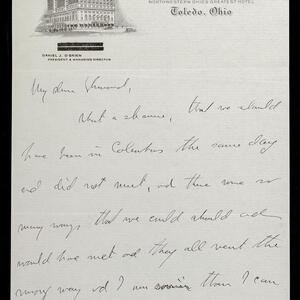 NORTHWESTERN OHIO'S GREATEST HOTEL
Toledo, Ohio
DANIEL J. O'BRIEN
PRESIDENT & MANAGING DIRECTOR
My dear Sherwood,
What a shame, that we should
have been in Columbus the same day
and did not meet, and there were so
many ways that we could should and
would have met and they all went the
wrong way and I am sorrier than I can